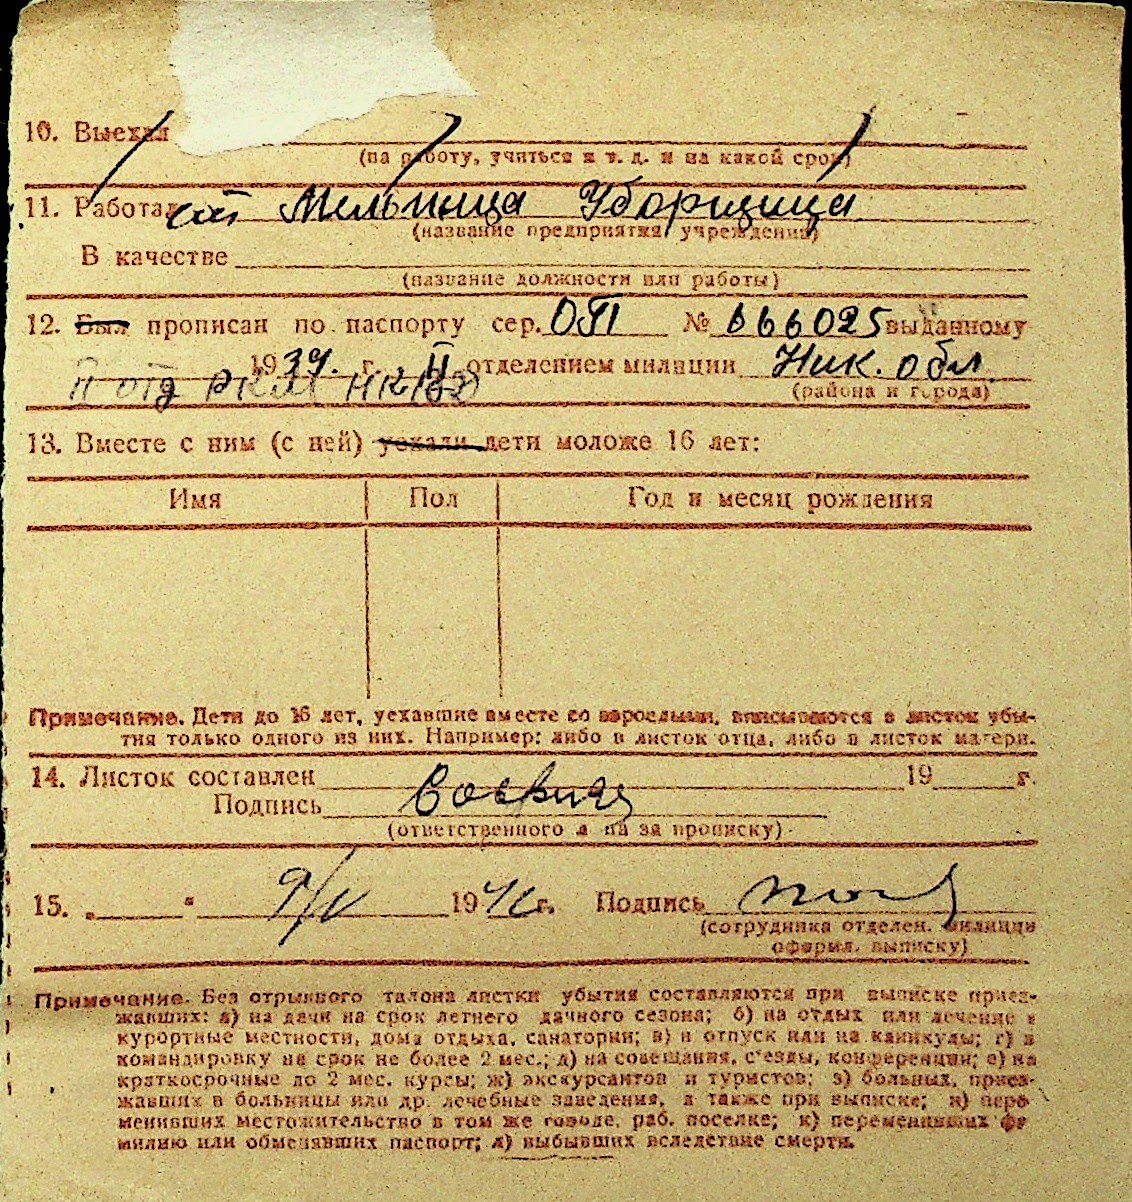 10. Выехал
(на работу, учиться и т. д. и на какой срок)
11. Работал ст. Мельница Уборщица
(название предприятия, учреждения)
В качестве
(название должности или работы)
12. Был прописан по паспорту сер. ОЯ № 666025 выданному
1939 г. II отделением милиции Ник. обл.
II отд РКМ НКВД
(района и города)
13. Вместе с ним (с ней) уехали дети моложе 16 лет:
Имя Пол Год и месяц рождения
Примечание. Дети до 16 лет, уехавшие вместе со взрослыми, вписываются в листок убы-
тия только одного из них. Например: либо в листок отца, либо в листок матери.
14. Листок составлен 19 г.
Подпись
(ответственного л на за прописку)
15. „ “ 9/V 1941 г. Подпись
(сотрудника отделен. милиции
оформл. выписку)
Примечание. Без отрывного талона листки убытия составляются при выписке приез-
жавших: а) на дачи на срок летнего дачного сезона; б) на отдых или лечение в
курортные местности, дома отдыха, санатории; в) в отпуск или на каникулы; г) в
командировку на срок не более 2 мес.; д) на совещания, с'езды, конференции; е) на
краткосрочные до 2 мес. курсы; ж) экскурсантов и туристов; з) больных, приез-
жавших в больницы или др. лечебные заведения, а также при выписке; и) пере-
менивших местожительство в том же городе, раб. поселке; к) переменивших фа-
милию или обменявших паспорт; л) выбывших вследствие смерти.